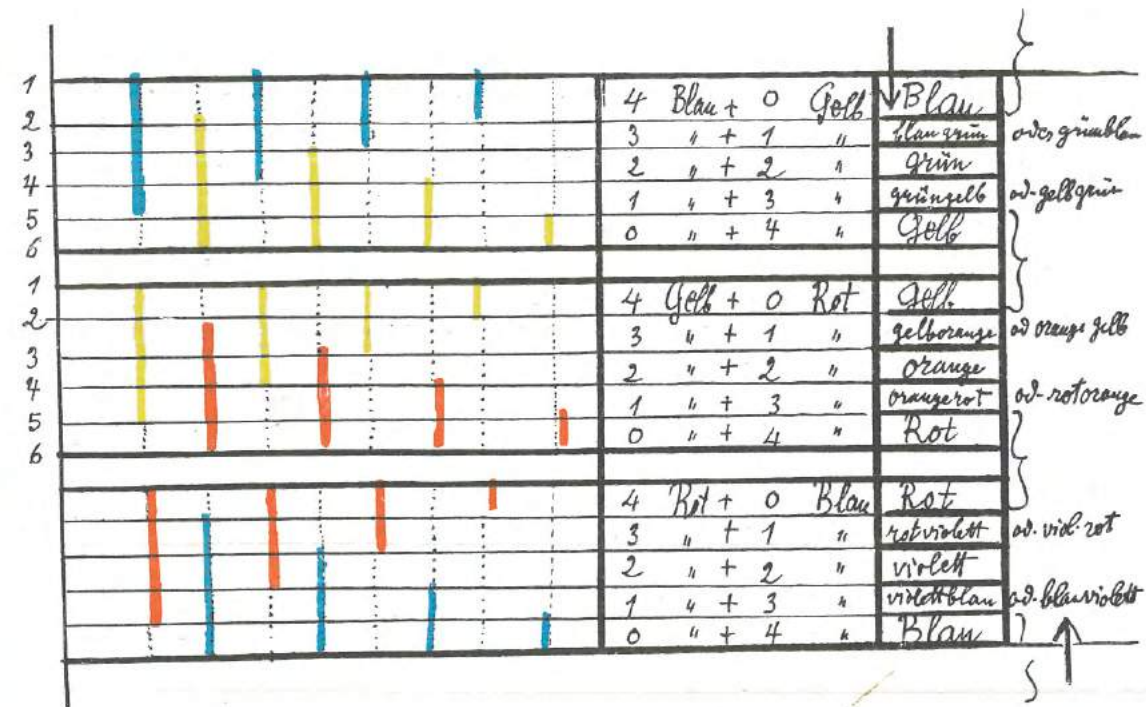 1 4 Blau + 0 Gelb Blau
2 3 " + 1 " blaugrün oder grünblau
3 2 " + 2 " grün
4 1 " + 3 " grüngelb od. gelbgrün
5 0 " + 4 " Gelb
6
1 4 Gelb + 0 Rot Gelb
2 3 " + 1 " gelborange od orange gelb
3 2 " + 2 " orange
4 1 " + 3 " orangerot od. rotorange
5 0 " + 4 " Rot
6
4 Rot + 0 Blau Rot
3 " + 1 " rotviolett od. viol-rot
2 " + 2 " violett
1 " + 3 " violettblau od. blauviolett
0 " + 4 " Blau